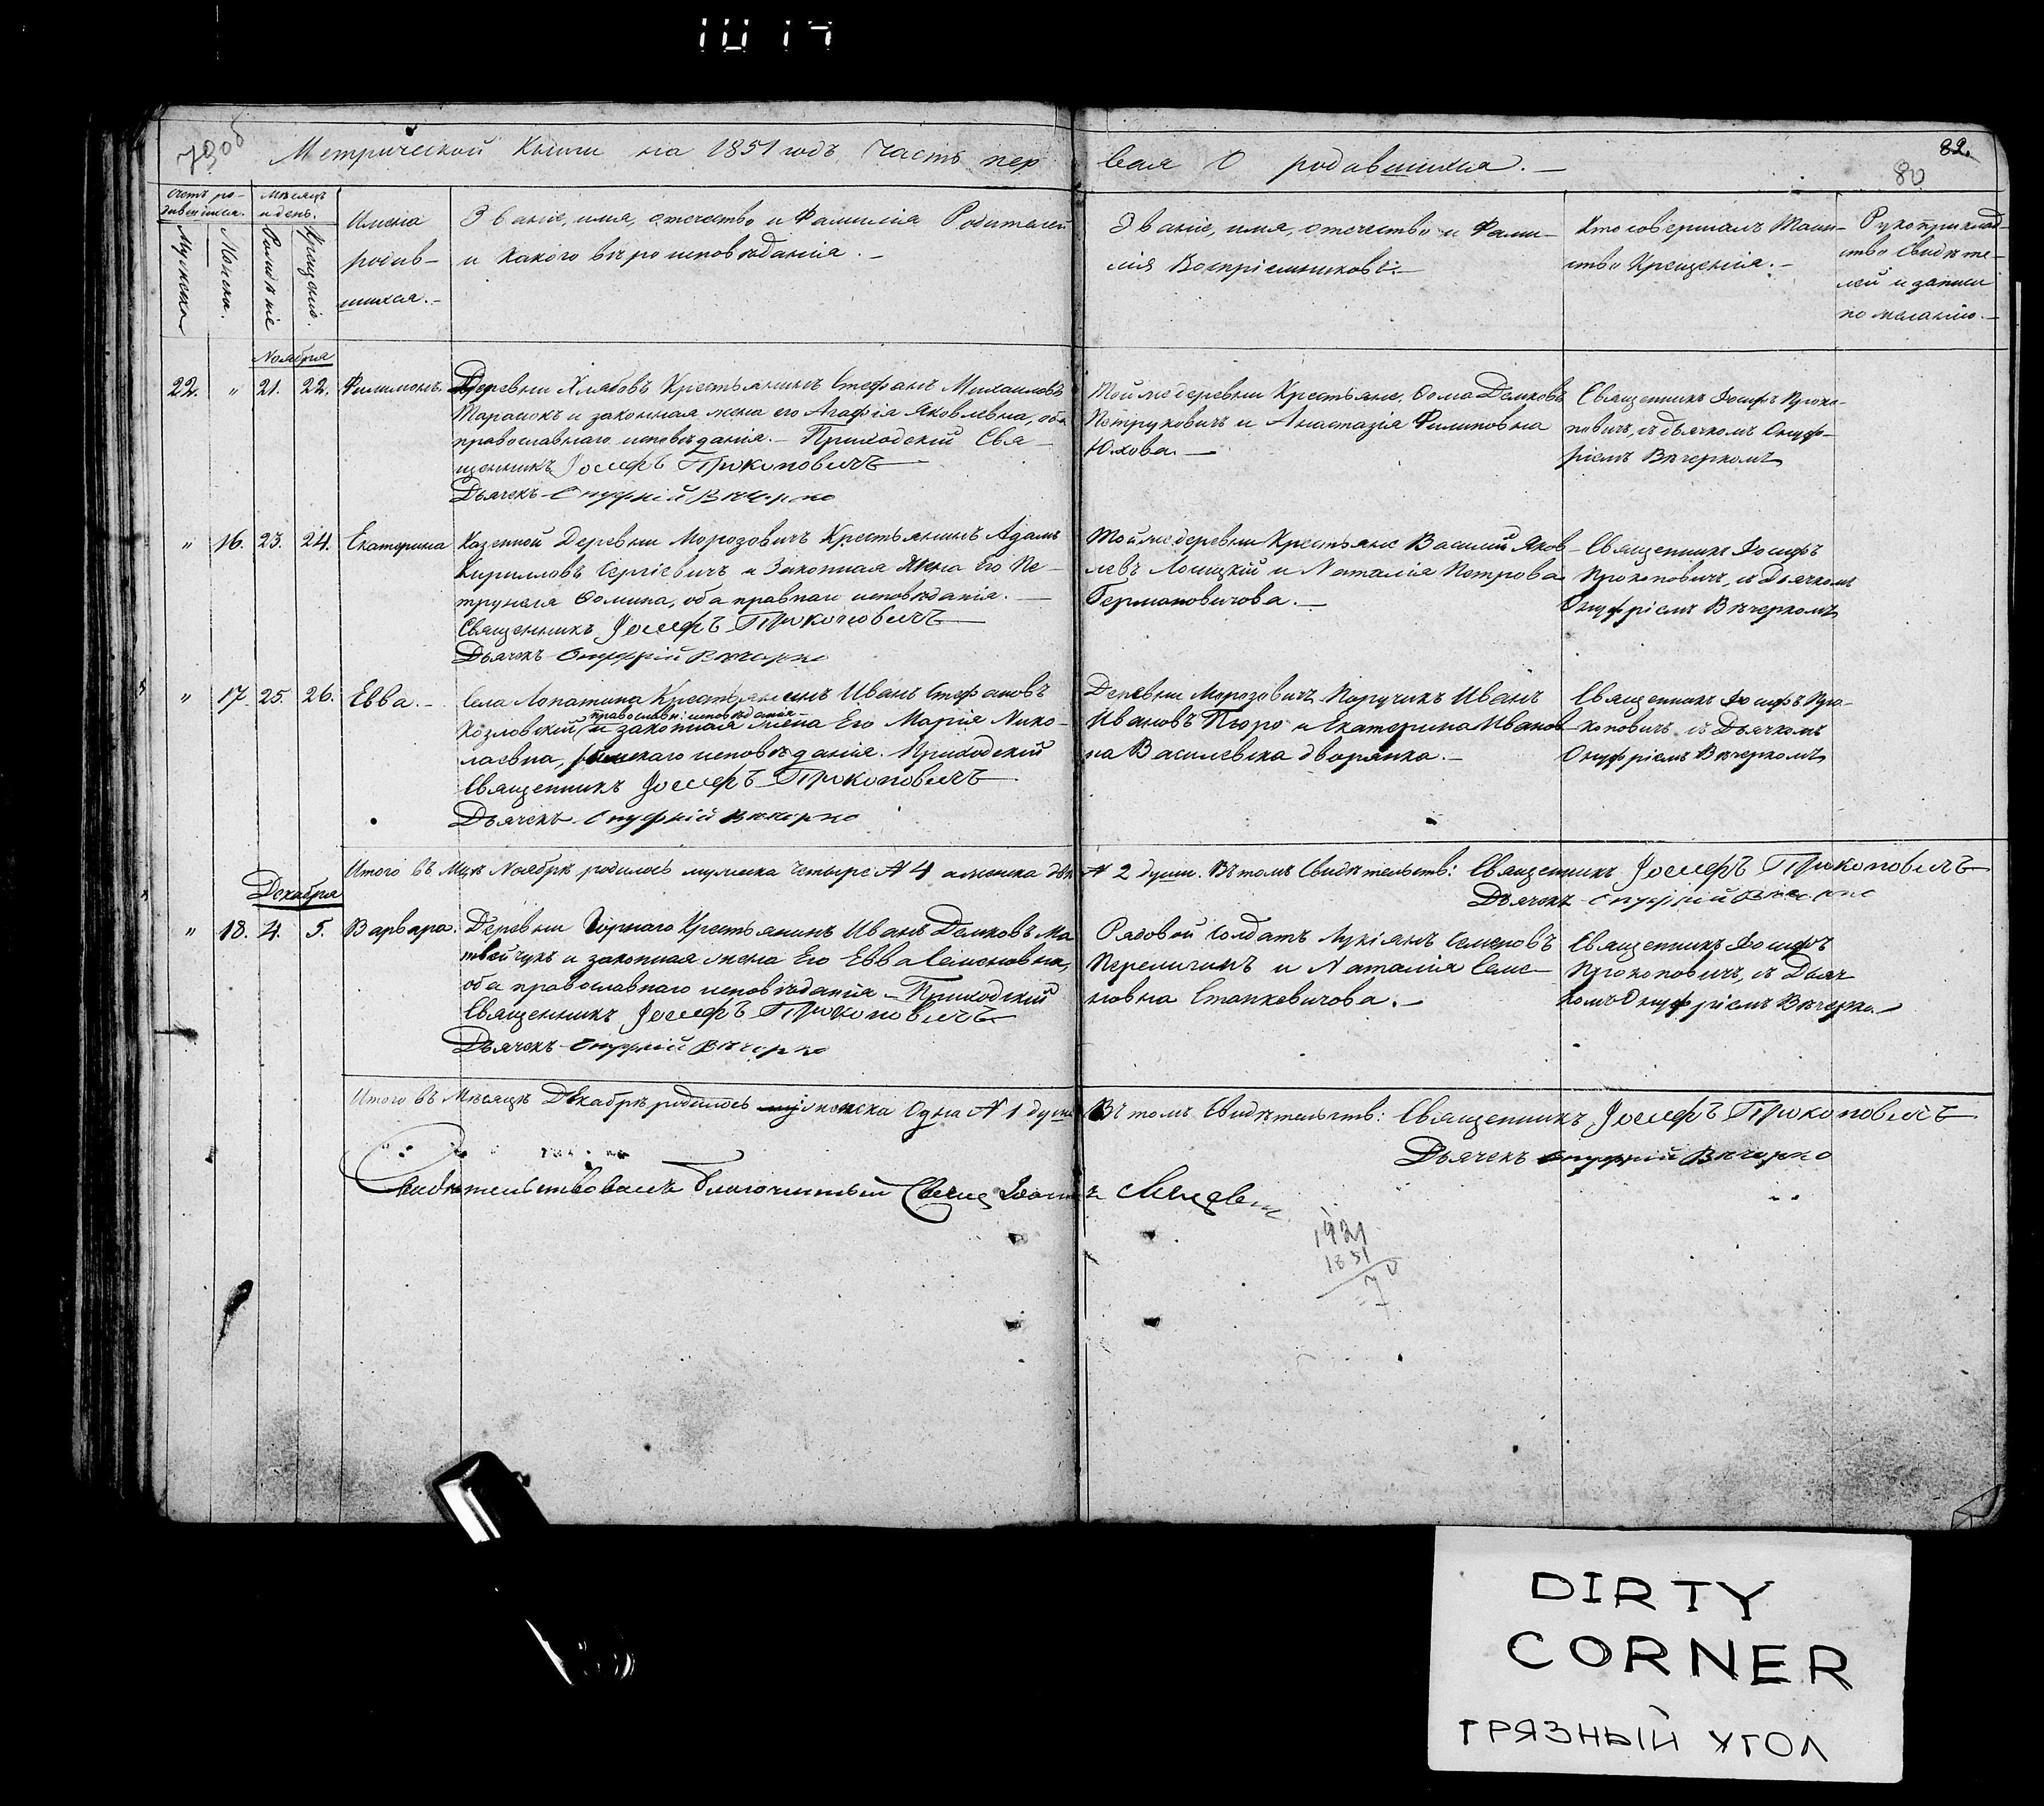 79 об
Метрической Книги на 1851 годъ Часть первая О родившихся.
82.
80
Счетъ родившихся.
Мѣсяцъ и день.
Мужска
Женска.
Рожденіе
Крещеніе.
Имена
родив-
шихся.
Званіе, имя, отечество и Фамилія Родителей
и какого вѣроисповѣданія.
Званіе, имя, отечество и Фами-
лія Воспріемниковъ.
Кто совершалъ Таин-
ство Крещенія.
Рукоприклад-
ство Свидѣте-
лей и записи
по желанію.
Ноября
22. " 21. 22. Филимонъ.
Деревни Хлябовъ Крестьянинъ Стефанъ Михаиловъ
Тарасюкъ и законная жена его Агафія Яковлевна, оба
православнаго исповѣданія. Приходскій Свя-
щенникъ Іосифъ Прокоповичъ
Дьячекъ Онуфрій Вѣчорко
Той же деревни Крестьяне, Ѳома Демковъ
Петруковичъ и Анастазія Филиповна
Юхова.
Священникъ Іосифъ Проко-
повичъ, съ дьячкомъ Онуф-
ріемъ Вѣчеркомъ
" 16. 23. 24. Екатерина
Казенной Деревни Морозовичъ Крестьянинъ Адамъ
Кирилловъ Сергіевичъ и Законная Жена Его Пе-
трунеля Ѳомина, оба правнаго исповѣданія.
Священникъ Іосифъ Прокоповичъ
Дьячекъ Онуфрій Вѣчорко
Той же деревни Крестьяне Василій Яков-
левъ Лосицкій и Наталія Петрова
Германовичова.
Священникъ Іосифъ
Прокоповичъ, съ Дьячкомъ
Онуфріемъ Вѣчеркомъ
" 17. 25. 26. Евва.
Села Лопатина Крестьянинъ Иванъ Стефановъ
православн: исповѣданія
Козловскій и законная жена Его Марія Нико-
лаевна, римскаго исповѣданія. Приходскій
Священникъ Іосифъ Прокоповичъ
Дьячекъ Онуфрій Вѣчорко
Деревни Морозовичъ Поручикъ Иванъ
Ивановъ Пюро и Екатерина Иванов-
на Василевска дворянка.
Священникъ Іосифъ Про-
коповичъ съ Дьячкомъ
Онуфріемъ Вѣчеркомъ
Итого въ Мцѣ Ноябрѣ родилось мужска четыре № 4 а женска двѣ № 2 души. Въ томъ Свидѣтельств: Священникъ Іосифъ Прокоповичъ
Дьячекъ Онуфрій Вѣчорко
Декабря
" 18. 4. 5. Варвара.
Деревни Горнаго Крестьянинъ Иванъ Демковъ Ма-
твейчукъ и законная жена Его Евва Семеновна,
оба православнаго исповѣданія Приходскій
Священникъ Іосифъ Прокоповичъ
Дьячекъ Онуфрій Вѣчорко
Рядовой Солдатъ Лукіанъ Семеновъ
и Наталія Семе-
новна Станкевичова.
Священникъ Іосифъ
Прокоповичъ, съ Дьяч-
комъ Онуфріемъ Вѣчерко.
Итого въ Мѣсяцѣ Декабрѣ родилось женска Одна № 1 душа Въ томъ Свидѣтельств: Священникъ Іосифъ Прокоповичъ
Дьячекъ Онуфрій Вѣчорко
Свидѣтельствовалъ Благочинный Свящ Іоаннъ
1921
1851
70
DIRTY
CORNER
ГРЯЗНЫЙ УГОЛ